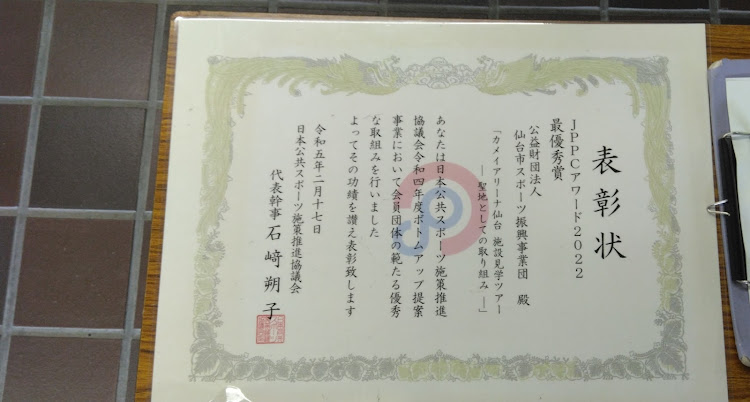 表彰状
JPPCアワード2022
最優秀賞
公益財団法人
仙台市スポーツ振興事業団 殿
「カメイアリーナ仙台 施設見学ツアー
―聖地としての取り組み―」
あなたは日本公共スポーツ施策推進
協議会令和四年度ボトムアップ提案
事業において会員団体の範たる優秀
な取組みを行いました
よってその功績を讃え表彰致します
令和五年二月十七日
日本公共スポーツ施策推進協議会
代表幹事 石﨑朔子